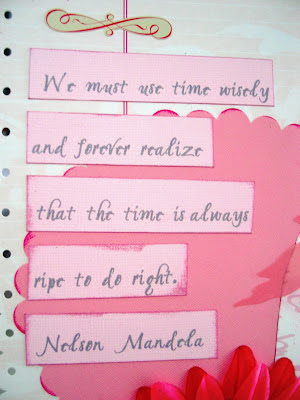 We must use time wisely
and forever realize
that the time is always
ripe to do right.
Nelson Mandela